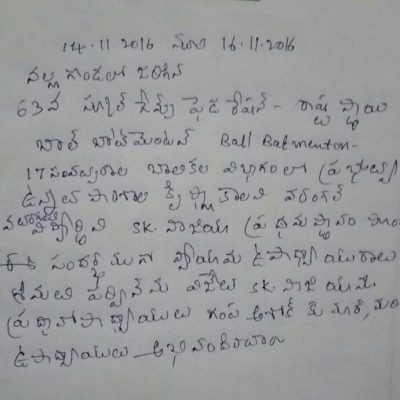 14.11.2016 నుండి 16.11.2016
నల్లగొండలో జరిగిన
63వ స్కూల్ గేమ్స్ ఫెడరేషన్ - రాష్ట్ర స్థాయి
బాల్ బాట్‌మెంటన్ Ball Batmenton -
17 సంవత్సరాల బాలికల విభాగంలో ప్రభుత్వ
ఉన్నత పాఠశాల వరంగల్
విద్యార్థిని SK. నాజియా ప్రథమ స్థానం
ఈ సందర్భముగా వ్యాయామ ఉపాధ్యాయురాలు
శ్రీమతి విజేత SK. నాజియాను
ప్రధానోపాధ్యాయులు గంప అశోక్ కుమార్,
ఉపాధ్యాయులు అభినందించారు